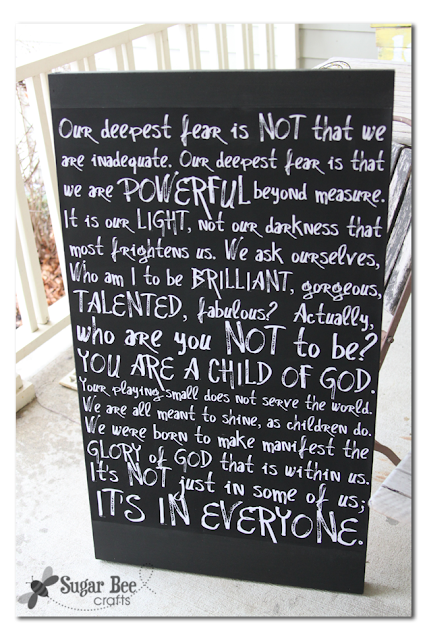 Our deepest fear is NOT that we
are inadequate. Our deepest fear is that
we are POWERFUL beyond measure.
It is our LIGHT, not our darkness that
most frightens us. We ask ourselves,
Who am I to be BRILLIANT, gorgeous,
TALENTED, fabulous? Actually,
who are you NOT to be?
YOU ARE A CHILD OF GOD.
Your playing small does not serve the world.
We are all meant to shine, as children do.
We were born to make manifest the
GLORY of GOD that is within us.
It's NOT just in some of us;
IT'S IN EVERYONE.
Sugar Bee
crafts